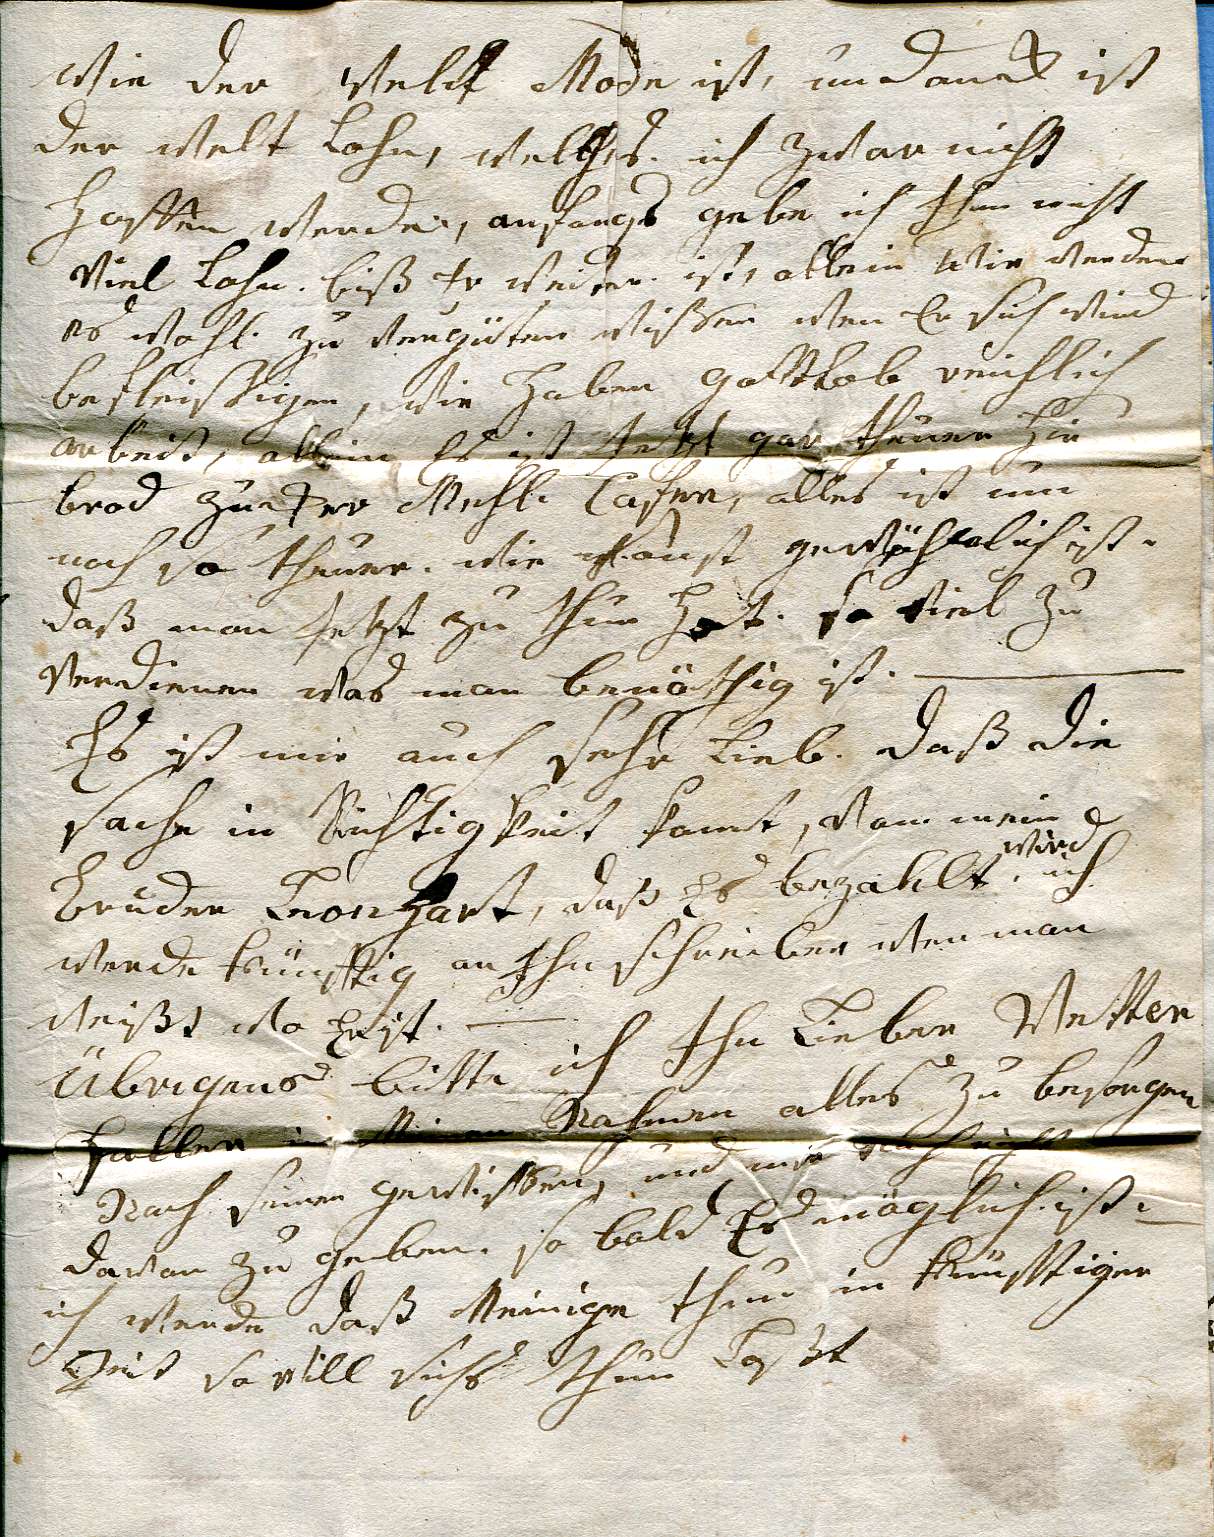 wie der Welt Mode ist, undanck ist
der Welt Lohn, welches ich zwar nicht
hoffen werde, anfangs gebe ich Ihm nicht
viel Lohn. biß Er weiter ist, allein wir werden
es wohl zu vergüten wißen wen Er sich wird
befleissigen, wir haben gottlob reichlich
arbeit, allein Es ist Jetzt gar theuer hir
brod Zucker Mehl Caffee, alles ist nun
noch so theuer. wie sonst gewöhnlich ist.
daß man Jetzt zu thun hat. so viel zu
verdienen was man benöthig ist.
Es ist mir auch sehr Lieb. daß die
sache in Richtigkeit komt, von mein
bruder Leonhart, daß Es bezahlt wird ich
werde künfftig an Ihn schreiben wen man
weißt wo Er ist.
Übrigens bitte ich Ihn Lieber Vetter
Haller in Meinen Nahmen alles zu besorgen
Nach seinen gewissen, und mir nachricht
davon zu geben. so bald Es möglich ist.
ich werde daß Meinige thun in künfftiger
Zeit so vill sichs thun Läßt